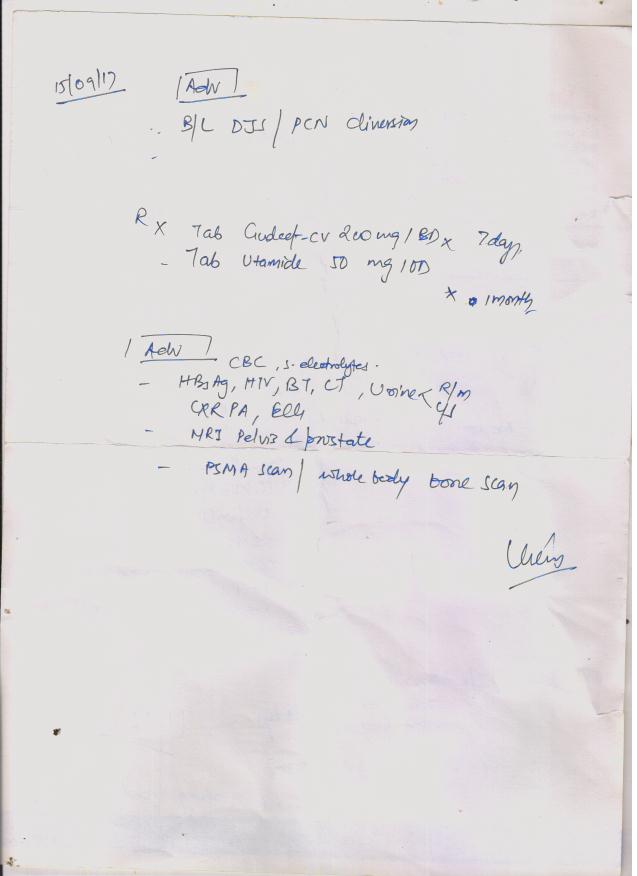 15/09/17 Adv
∴ B/L DJS / PCN diversion
-
Rx Tab Gudcef-CV 200 mg / BD x 7 days
- Tab Utamide 50 mg / OD
x 1 month
Adv
CBC, S. electrolytes.
- HBsAg, HIV, BT, CT, Urine < R/m
C/S
CXR PA, ECG
- MRI Pelvis & prostate
- PSMA scan / whole body bone scan